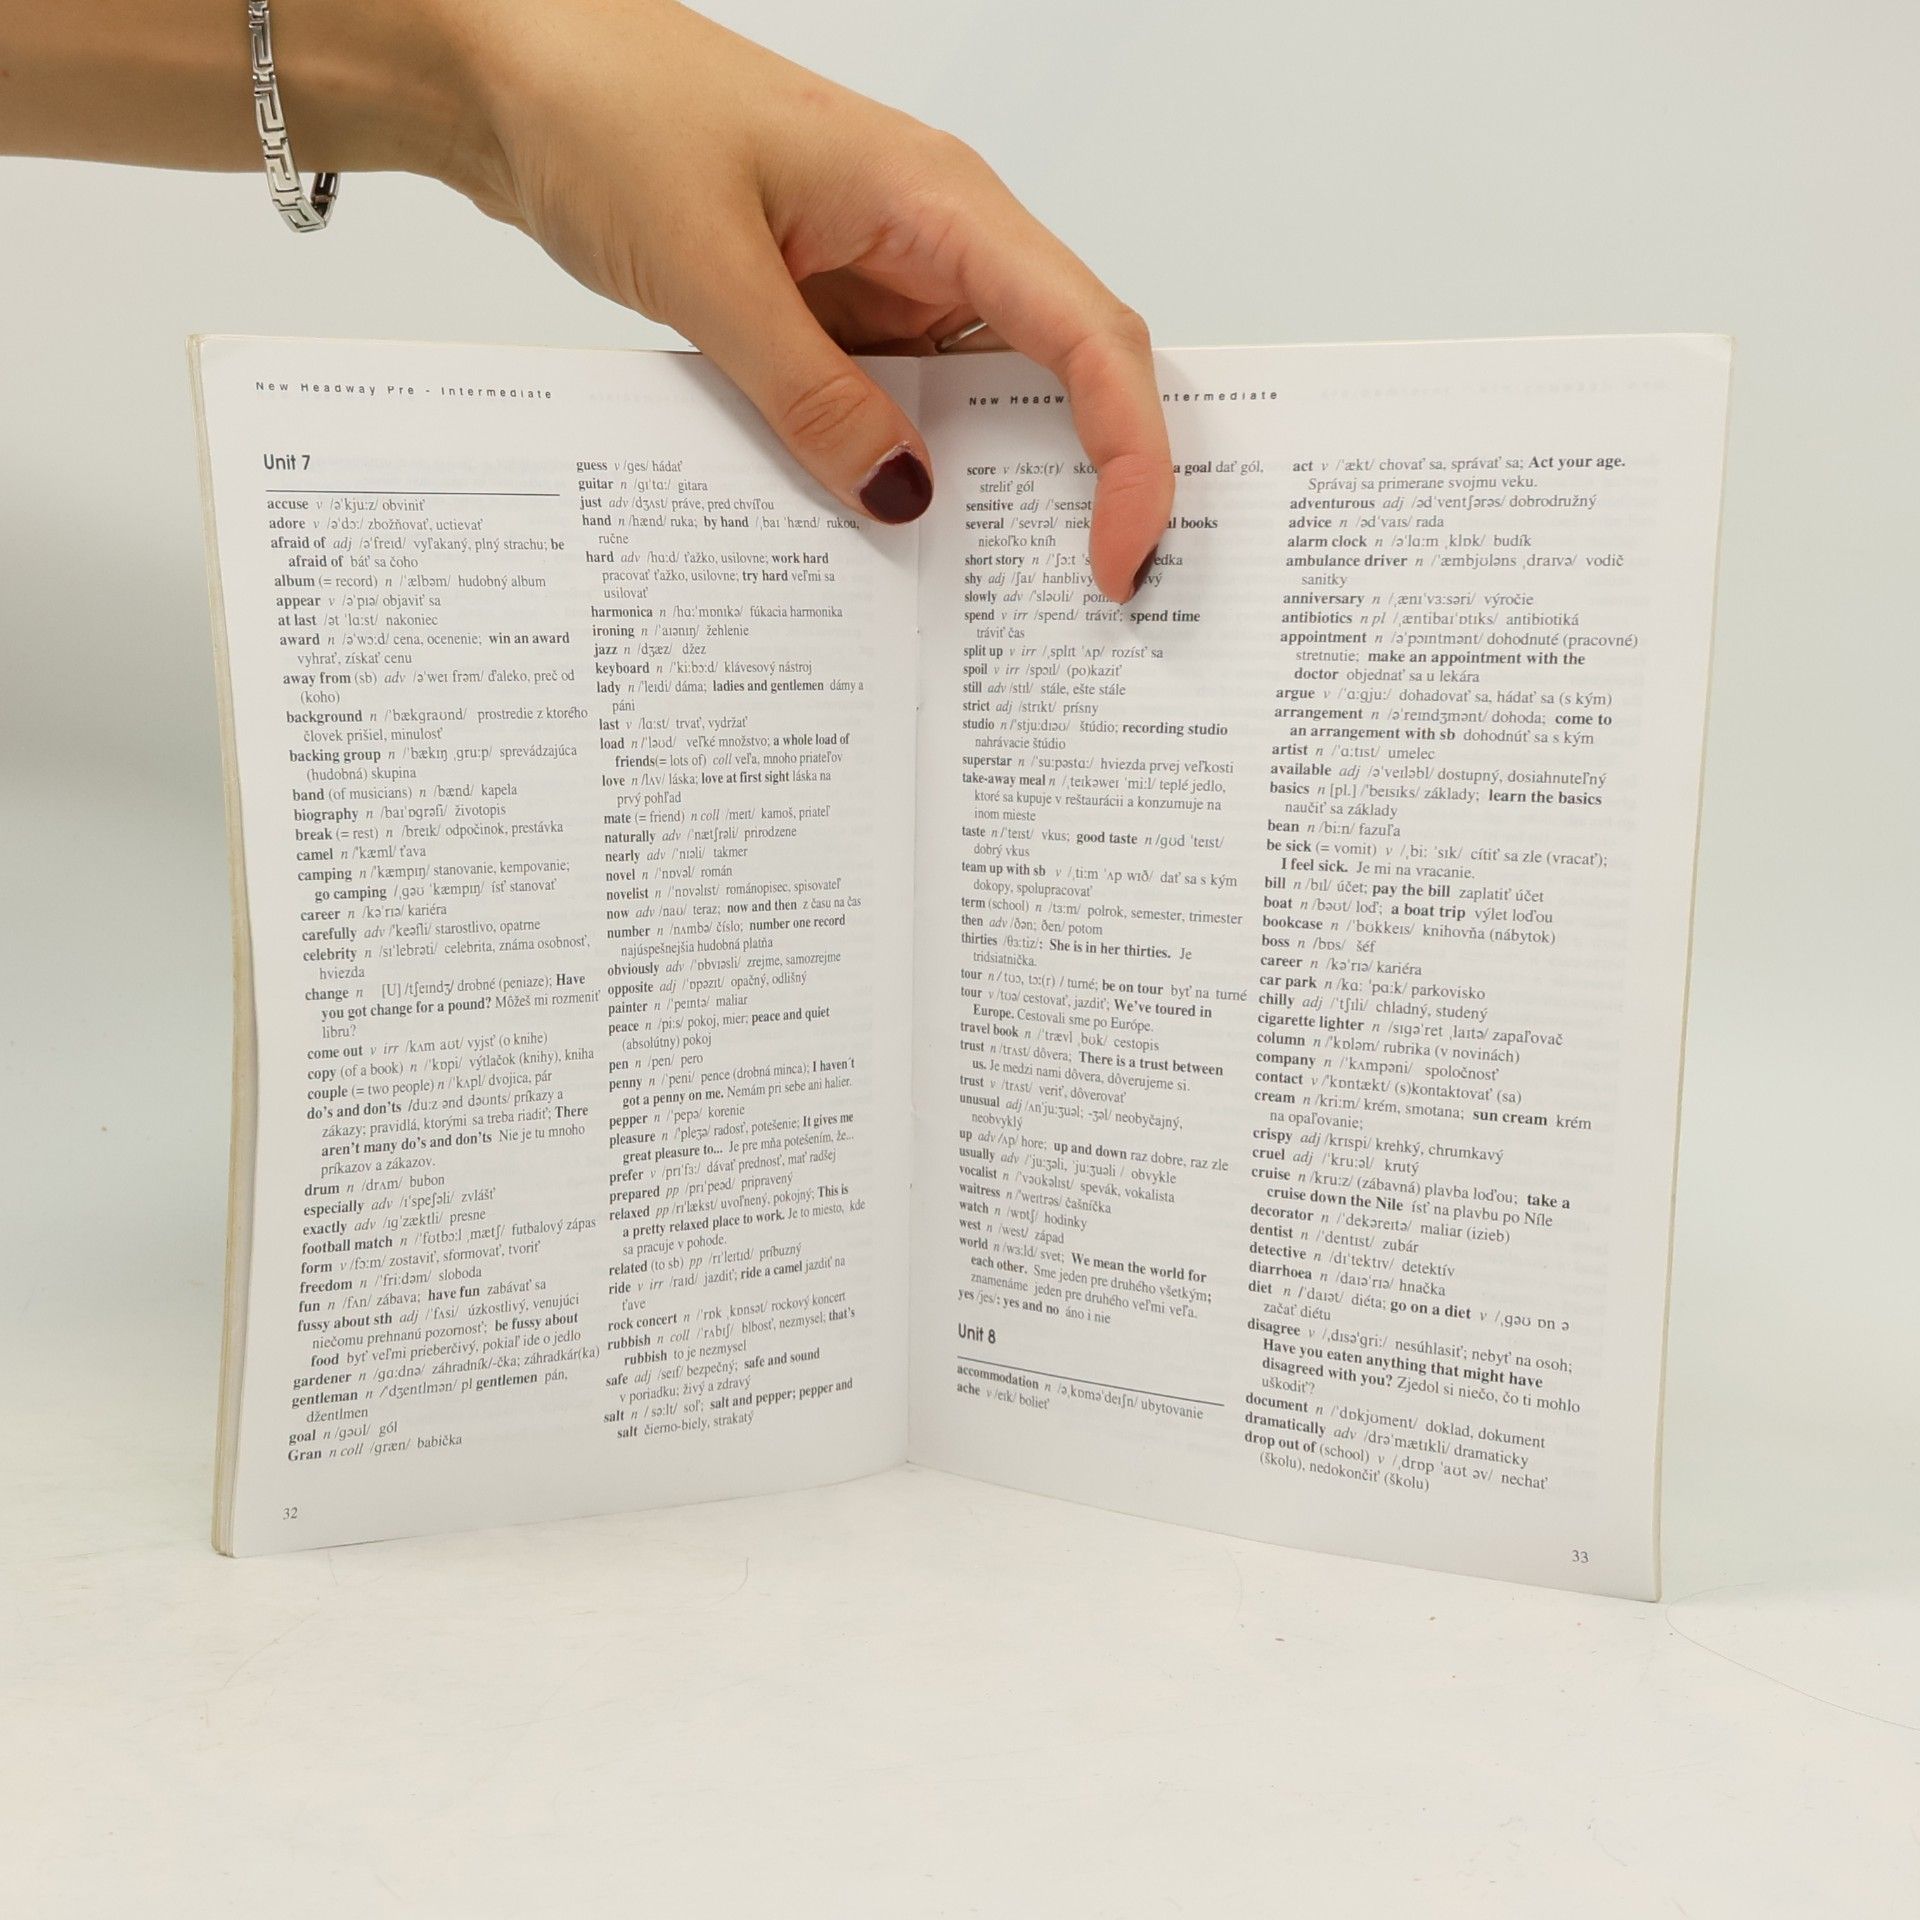 New Headway Pre - Intermediate
Unit 7
accuse v /ə'kju:z/ obviniť
adore v /ə'dɔ:/ zbožňovať, uctievať
afraid of adj /ə'freɪd/ vyľakaný, plný strachu; be
afraid of báť sa čoho
album (= record) n /'ælbəm/ hudobný album
appear v /ə'pɪə/ objaviť sa
at last /ət 'lɑ:st/ nakoniec
award n /ə'wɔ:d/ cena, ocenenie; win an award
vyhrať, získať cenu
away from (sb) adv /ə'weɪ frəm/ ďaleko, preč od
(koho)
background n /'bækgraʊnd/ prostredie z ktorého
človek prišiel, minulosť
backing group n /'bækɪŋ ˌgru:p/ sprevádzajúca
(hudobná) skupina
band (of musicians) n /bænd/ kapela
biography n /baɪ'ɒgrəfi/ životopis
break (= rest) n /breɪk/ odpočinok, prestávka
camel n /'kæml/ ťava
camping n /'kæmpɪŋ/ stanovanie, kempovanie;
go camping /ˌgəʊ 'kæmpɪŋ/ ísť stanovať
career n /kə'rɪə/ kariéra
carefully adv /'keəfli/ starostlivo, opatrne
celebrity n /sɪ'lebrəti/ celebrita, známa osobnosť,
hviezda
change n [U] /tʃeɪndʒ/ drobné (peniaze); Have
you got change for a pound? Môžeš mi rozmeniť
libru?
come out v irr /kʌm aʊt/ vyjsť (o knihe)
copy (of a book) n /'kɒpi/ výtlačok (knihy), kniha
couple (= two people) n /'kʌpl/ dvojica, pár
do's and don'ts /du:z ənd dəʊnts/ príkazy a
zákazy; pravidlá, ktorými sa treba riadiť; There
aren't many do's and don'ts Nie je tu mnoho
príkazov a zákazov.
drum n /drʌm/ bubon
especially adv /ɪ'speʃəli/ zvlášť
exactly adv /ɪg'zæktli/ presne
football match n /'fʊtbɔ:l ˌmætʃ/ futbalový zápas
form v /fɔ:m/ zostaviť, sformovať, tvoriť
freedom n /'fri:dəm/ sloboda
fun n /fʌn/ zábava; have fun zabávať sa
fussy about sth adj /'fʌsi/ úzkostlivý, venujúci
niečomu prehnanú pozornosť; be fussy about
food byť veľmi prieberčivý, pokiaľ ide o jedlo
gardener n /gɑ:dnə/ záhradník/-čka; záhradkár(ka)
gentleman n /'dʒentlmən/ pl gentlemen pán,
džentlmen
goal n /gəʊl/ gól
Gran n coll /græn/ babička
guess v /ges/ hádať
guitar n /gɪ'tɑ:/ gitara
just adv /dʒʌst/ práve, pred chvíľou
hand n /hænd/ ruka; by hand /ˌbaɪ 'hænd/ rukou,
ručne
hard adv /hɑ:d/ ťažko, usilovne; work hard
pracovať ťažko, usilovne; try hard veľmi sa
usilovať
harmonica n /hɑ:'monɪkə/ fúkacia harmonika
ironing n /'aɪənɪŋ/ žehlenie
jazz n /dʒæz/ džez
keyboard n /'ki:bɔ:d/ klávesový nástroj
lady n /'leɪdi/ dáma; ladies and gentlemen dámy a
páni
last v /lɑ:st/ trvať, vydržať
load n /'ləʊd/ veľké množstvo; a whole load of
friends(= lots of) coll veľa, mnoho priateľov
love n /lʌv/ láska; love at first sight láska na
prvý pohľad
mate (= friend) n coll /meɪt/ kamoš, priateľ
naturally adv /'nætʃrəli/ prirodzene
nearly adv /'nɪəli/ takmer
novel n /'nɒvəl/ román
novelist n /'nɒvəlɪst/ románopisec, spisovateľ
now adv /naʊ/ teraz; now and then z času na čas
number n /nʌmbə/ číslo; number one record
najúspešnejšia hudobná platňa
obviously adv /'ɒbvɪəsli/ zrejme, samozrejme
opposite adj /'ɒpəzɪt/ opačný, odlišný
painter n /'peɪntə/ maliar
peace n /pi:s/ pokoj, mier; peace and quiet
(absolútny) pokoj
pen n /pen/ pero
penny n /'peni/ pence (drobná minca); I haven´t
got a penny on me. Nemám pri sebe ani halier.
pepper n /'pepə/ korenie
pleasure n /'pleʒə/ radosť, potešenie; It gives me
great pleasure to... Je pre mňa potešením, že...
prefer v /prɪ'fɜ:/ dávať prednosť, mať radšej
prepared pp /prɪ'peəd/ pripravený
relaxed pp /rɪ'lækst/ uvoľnený, pokojný; This is
a pretty relaxed place to work. Je to miesto, kde
sa pracuje v pohode.
related (to sb) pp /rɪ'leɪtɪd/ príbuzný
ride v irr /raɪd/ jazdiť; ride a camel jazdiť na
ťave
rock concert n /'rɒk ˌkɒnsət/ rockový koncert
rubbish n coll /'rʌbɪʃ/ blbosť, nezmysel; that's
rubbish to je nezmysel
safe adj /seɪf/ bezpečný; safe and sound
v poriadku; živý a zdravý
salt n /sɔ:lt/ soľ; salt and pepper; pepper and
salt čierno-biely, strakatý
32
New Headw ntermediate
score v /skɔ:(r)/ skó a goal dať gól,
streliť gól
sensitive adj /'sensət
several /'sevrəl/ niek l books
niekoľko kníh
short story n /'ʃɔ:t 's edka
shy adj /ʃaɪ/ hanblivý vý
slowly adv /'sləʊli/ pom
spend v irr /spend/ tráviť; spend time
tráviť čas
split up v irr /ˌsplɪt 'ʌp/ rozísť sa
spoil v irr /spɔɪl/ (po)kaziť
still adv /stɪl/ stále, ešte stále
strict adj /strɪkt/ prísny
studio n /'stju:dɪəʊ/ štúdio; recording studio
nahrávacie štúdio
superstar n /'su:pəstɑ:/ hviezda prvej veľkosti
take-away meal n /ˌteɪkəweɪ 'mi:l/ teplé jedlo,
ktoré sa kupuje v reštaurácii a konzumuje na
inom mieste
taste n /'teɪst/ vkus; good taste n /gʊd 'teɪst/
dobrý vkus
team up with sb v /ˌti:m 'ʌp wɪð/ dať sa s kým
dokopy, spolupracovať
term (school) n /tɜ:m/ polrok, semester, trimester
then adv /ðən; ðen/ potom
thirties /θɜ:tiz/: She is in her thirties. Je
tridsiatnička.
tour n /tʊə, tɔ:(r) / turné; be on tour byť na turné
tour v /tʊə/ cestovať, jazdiť; We've toured in
Europe. Cestovali sme po Európe.
travel book n /'trævl ˌbʊk/ cestopis
trust n /trʌst/ dôvera; There is a trust between
us. Je medzi nami dôvera, dôverujeme si.
trust v /trʌst/ veriť, dôverovať
unusual adj /ʌn'ju:ʒuəl; -ʒəl/ neobyčajný,
neobvyklý
up adv /ʌp/ hore; up and down raz dobre, raz zle
usually adv /'ju:ʒəli, 'ju:ʒuəli / obvykle
vocalist n /'vəʊkəlɪst/ spevák, vokalista
waitress n /'weɪtrəs/ čašníčka
watch n /wɒtʃ/ hodinky
west n /west/ západ
world n /wɜ:ld/ svet; We mean the world for
each other. Sme jeden pre druhého všetkým;
znamenáme jeden pre druhého veľmi veľa.
yes /jes/: yes and no áno i nie
Unit 8
accommodation n /əˌkɒmə'deɪʃn/ ubytovanie
ache v /eɪk/ bolieť
act v /'ækt/ chovať sa, správať sa; Act your age.
Správaj sa primerane svojmu veku.
adventurous adj /əd'ventʃərəs/ dobrodružný
advice n /əd'vaɪs/ rada
alarm clock n /ə'lɑ:m ˌklɒk/ budík
ambulance driver n /'æmbjʊləns ˌdraɪvə/ vodič
sanitky
anniversary n /ˌænɪ'vɜ:səri/ výročie
antibiotics n pl /ˌæntibaɪ'ɒtɪks/ antibiotiká
appointment n /ə'pɔɪntmənt/ dohodnuté (pracovné)
stretnutie; make an appointment with the
doctor objednať sa u lekára
argue v /'ɑ:gju:/ dohadovať sa, hádať sa (s kým)
arrangement n /ə'reɪndʒmənt/ dohoda; come to
an arrangement with sb dohodnúť sa s kým
artist n /'ɑ:tɪst/ umelec
available adj /ə'veɪləbl/ dostupný, dosiahnuteľný
basics n [pl.] /'beɪsɪks/ základy; learn the basics
naučiť sa základy
bean n /bi:n/ fazuľa
be sick (= vomit) v /ˌbi: 'sɪk/ cítiť sa zle (vracať);
I feel sick. Je mi na vracanie.
bill n /bɪl/ účet; pay the bill zaplatiť účet
boat n /bəʊt/ loď; a boat trip výlet loďou
bookcase n /'bʊkkeɪs/ knihovňa (nábytok)
boss n /bɒs/ šéf
career n /kə'rɪə/ kariéra
car park n /kɑ: 'pɑ:k/ parkovisko
chilly adj /'tʃɪli/ chladný, studený
cigarette lighter n /sɪgə'ret ˌlaɪtə/ zapaľovač
column n /'kɒləm/ rubrika (v novinách)
company n /'kʌmpəni/ spoločnosť
contact v /'kɒntækt/ (s)kontaktovať (sa)
cream n /kri:m/ krém, smotana; sun cream krém
na opaľovanie;
crispy adj /krɪspi/ krehký, chrumkavý
cruel adj /'kru:əl/ krutý
cruise n /kru:z/ (zábavná) plavba loďou; take a
cruise down the Nile ísť na plavbu po Níle
decorator n /'dekəreɪtə/ maliar (izieb)
dentist n /'dentɪst/ zubár
detective n /dɪ'tektɪv/ detektív
diarrhoea n /daɪə'rɪə/ hnačka
diet n /'daɪət/ diéta; go on a diet v /ˌgəʊ ɒn ə
začať diétu
disagree v /ˌdɪsə'gri:/ nesúhlasiť; nebyť na osoh;
Have you eaten anything that might have
disagreed with you? Zjedol si niečo, čo ti mohlo
uškodiť?
document n /'dɒkjʊment/ doklad, dokument
dramatically adv /drə'mætɪkli/ dramaticky
drop out of (school) v /ˌdrɒp 'aʊt əv/ nechať
(školu), nedokončiť (školu)
33